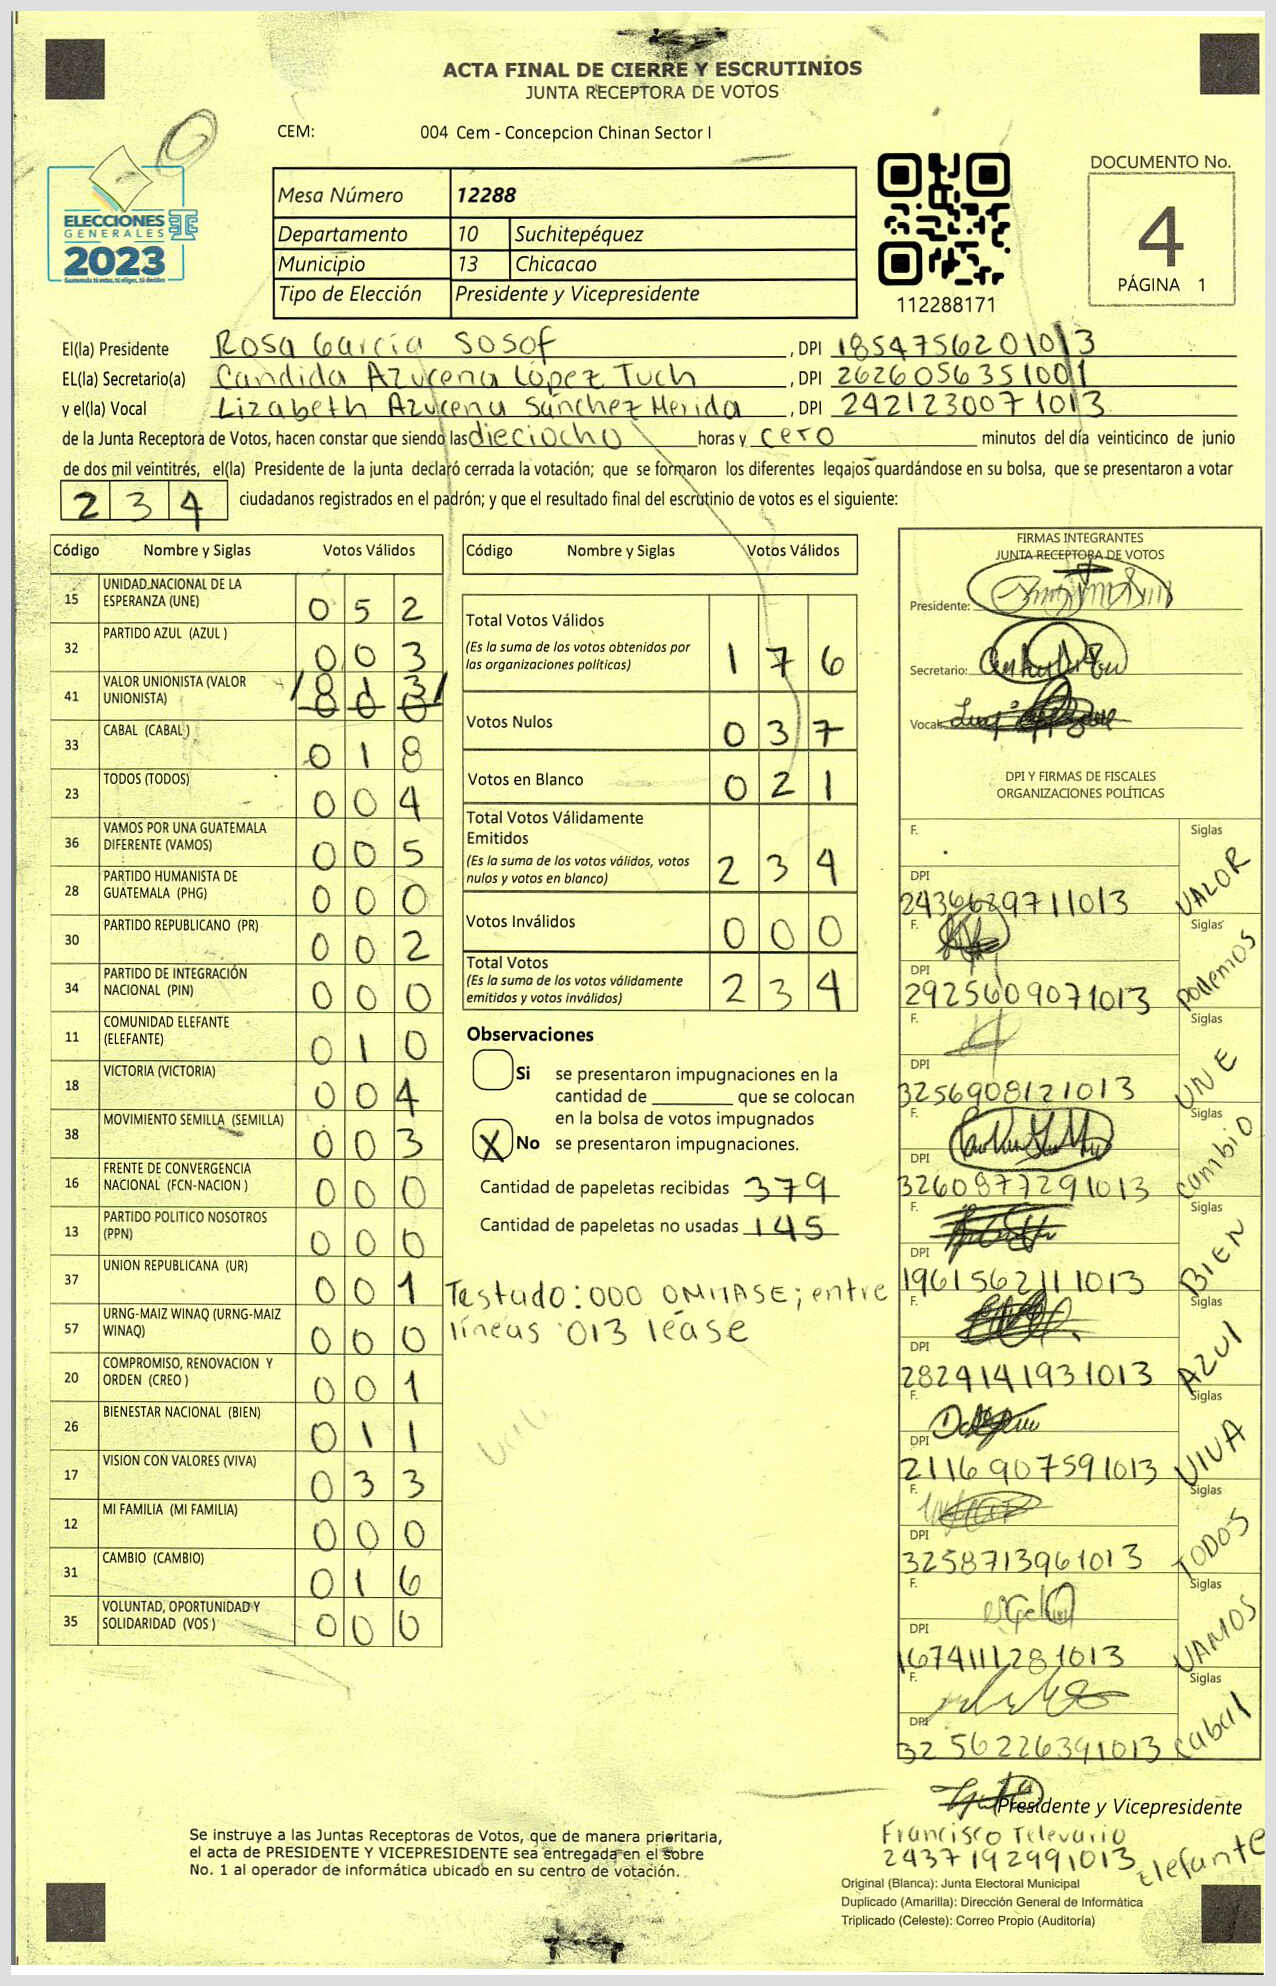 ACTA FINAL DE CIERRE Y ESCRUTINIOS
JUNTA RECEPTORA DE VOTOS
CEM: 004 Cem - Concepcion Chinan Sector I
ELECCIONES
GENERALES
2023
Guatemala tú estas, tú eliges, tú decides
Mesa Número 12288
Departamento 10 Suchitepéquez
Municipio 13 Chicacao
Tipo de Elección Presidente y Vicepresidente
112288171
DOCUMENTO No.
4
PÁGINA 1
El(la) Presidente Rosa García Sosof, DPI 1854756201013
EL(la) Secretario(a) Candida Azucena López Tuch, DPI 2626056351001
y el(la) Vocal Lizabeth Azucena Sánchez Merida, DPI 2421230071013
de la Junta Receptora de Votos, hacen constar que siendo las dieciocho horas y cero minutos del día veinticinco de junio
de dos mil veintitrés, el(la) Presidente de la junta declaró cerrada la votación; que se formaron los diferentes legajos guardándose en su bolsa, que se presentaron a votar
234 ciudadanos registrados en el padrón; y que el resultado final del escrutinio de votos es el siguiente:
Código Nombre y Siglas Votos Válidos
15 UNIDAD NACIONAL DE LA ESPERANZA (UNE) 052
32 PARTIDO AZUL (AZUL ) 003
41 VALOR UNIONISTA (VALOR UNIONISTA) 013 000
33 CABAL (CABAL ) 018
23 TODOS (TODOS) 004
36 VAMOS POR UNA GUATEMALA DIFERENTE (VAMOS) 005
28 PARTIDO HUMANISTA DE GUATEMALA (PHG) 000
30 PARTIDO REPUBLICANO (PR) 002
34 PARTIDO DE INTEGRACIÓN NACIONAL (PIN) 000
11 COMUNIDAD ELEFANTE (ELEFANTE) 010
18 VICTORIA (VICTORIA) 004
38 MOVIMIENTO SEMILLA (SEMILLA) 003
16 FRENTE DE CONVERGENCIA NACIONAL (FCN-NACION ) 000
13 PARTIDO POLITICO NOSOTROS (PPN) 000
37 UNION REPUBLICANA (UR) 001
57 URNG-MAIZ WINAQ (URNG-MAIZ WINAQ) 000
20 COMPROMISO, RENOVACION Y ORDEN (CREO ) 001
26 BIENESTAR NACIONAL (BIEN) 011
17 VISION CON VALORES (VIVA) 033
12 MI FAMILIA (MI FAMILIA) 000
31 CAMBIO (CAMBIO) 016
35 VOLUNTAD, OPORTUNIDAD Y SOLIDARIDAD (VOS ) 000
Código Nombre y Siglas Votos Válidos
Total Votos Válidos
(Es la suma de los votos obtenidos por
las organizaciones políticas) 176
Votos Nulos 037
Votos en Blanco 021
Total Votos Válidamente
Emitidos
(Es la suma de los votos válidos, votos
nulos y votos en blanco) 234
Votos Inválidos 000
Total Votos
(Es la suma de los votos válidamente
emitidos y votos inválidos) 234
Observaciones
Si se presentaron impugnaciones en la
cantidad de ________ que se colocan
en la bolsa de votos impugnados
X No se presentaron impugnaciones.
Cantidad de papeletas recibidas 379
Cantidad de papeletas no usadas 145
Testado: 000 OMITASE; entre
líneas 013 léase
FIRMAS INTEGRANTES
JUNTA RECEPTORA DE VOTOS
Presidente:
Secretario:
Vocal:
DPI Y FIRMAS DE FISCALES
ORGANIZACIONES POLÍTICAS
F. Siglas
DPI 2436689711013 VALOR
F. Siglas
DPI 2925609071013 Podemos
F. Siglas
DPI 3256908121013 UNE
F. Siglas
DPI 3260877291013 Cambio
F. Siglas
DPI 1961562111013 BIEN
F. Siglas
DPI 2824141931013 AZUL
F. Siglas
DPI 2116907591013 VIVA
F. Siglas
DPI 3258713961013 TODOS
F. Siglas
DPI 1674111281013 VAMOS
F. Siglas
DPI 3256226391013 Cabal
Presidente y Vicepresidente
Francisco Televario
2437192991013 Elefante
Se instruye a las Juntas Receptoras de Votos, que de manera prioritaria,
el acta de PRESIDENTE Y VICEPRESIDENTE sea entregada en el sobre
No. 1 al operador de informática ubicado en su centro de votación.
Original (Blanca): Junta Electoral Municipal
Duplicado (Amarilla): Dirección General de Informática
Triplicado (Celeste): Correo Propio (Auditoría)